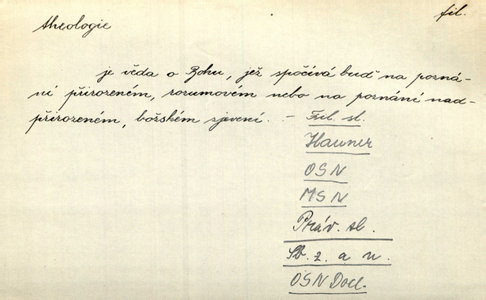 theologie
fil.
je věda o Bohu, jež spočívá buď na pozná-
ní přirozeném, rozumovém nebo na poznání nad-
přirozeném, božském zjevení. - Fil sl.
Hauner
OSN
MSN
Práv. sl.
Sb. z. a n.
OSN Dod.